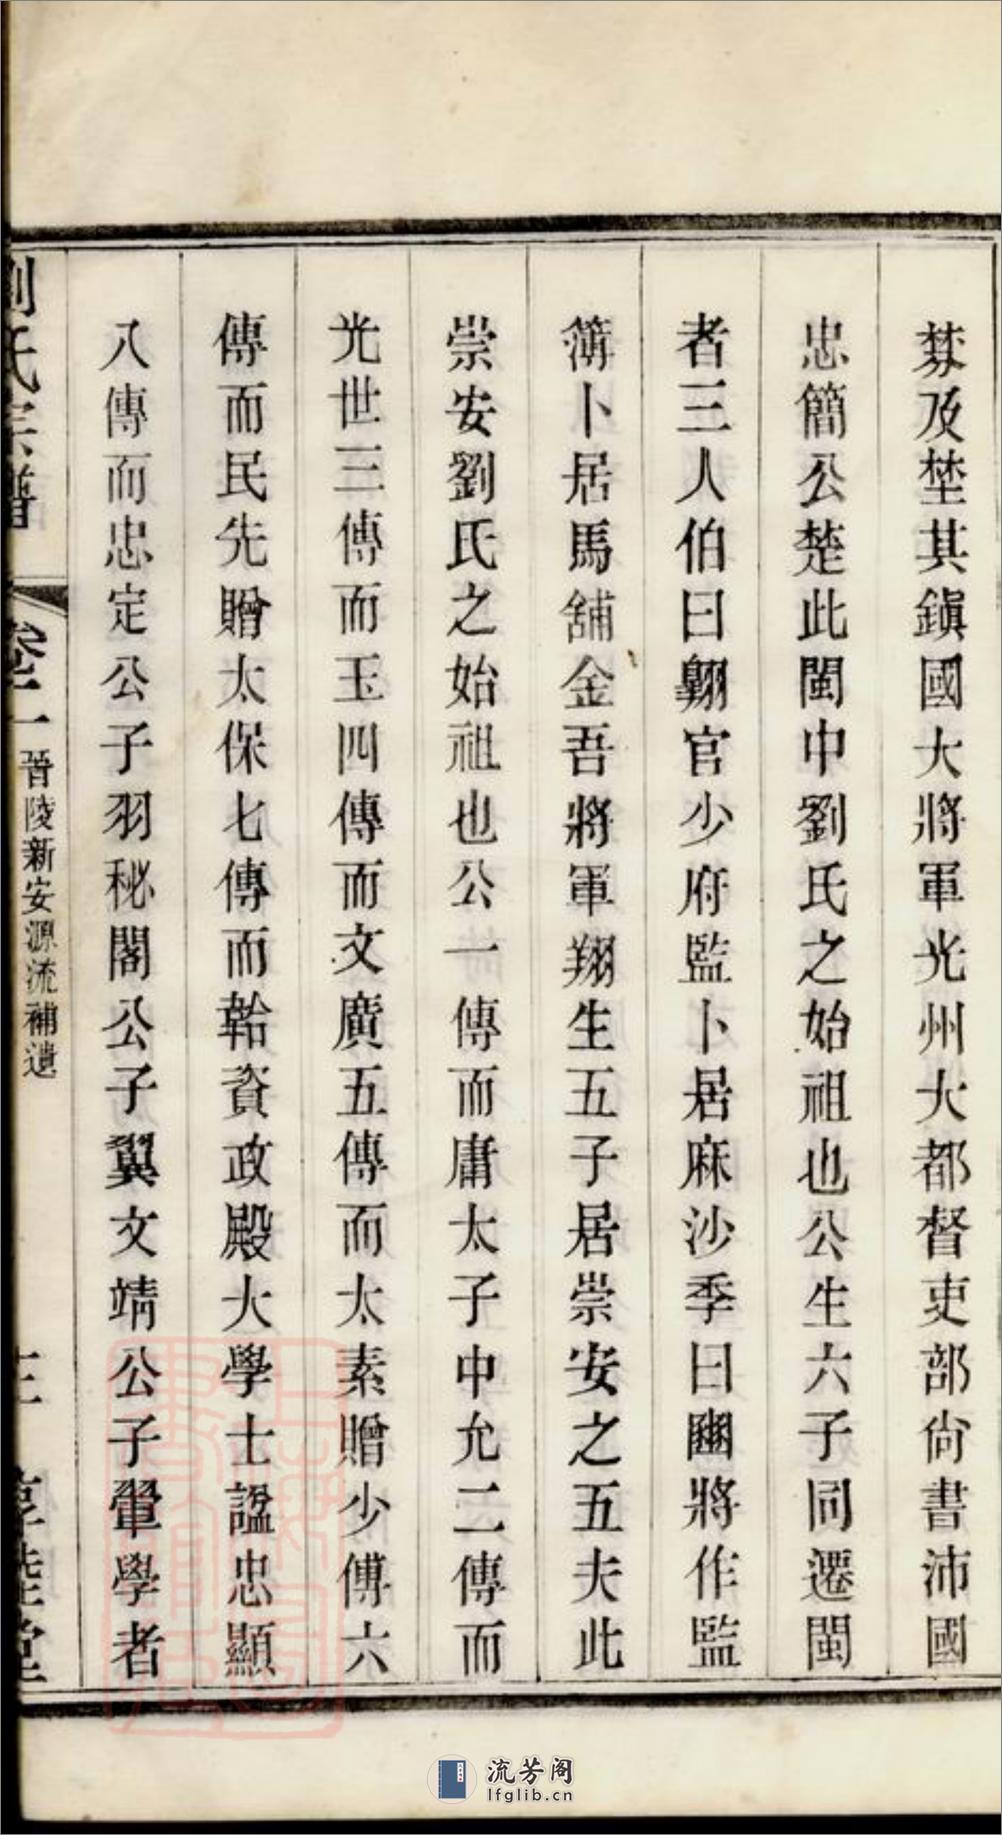 棼及埜其鎭國大將軍光州大都督吏部尙書沛國
忠簡公楚此閩中劉氏之始祖也公生六子同遷閩
者三人伯曰翺官少府監卜居麻沙季曰豳將作監
簿卜居馬舖金吾將軍翔生五子居崇安之五夫此
崇安劉氏之始祖也公一傳而庸太子中允二傳而
光世三傳而玉四傳而文廣五傳而太素贈少傅六
傳而民先贈太保七傳而韐資政殿大學士諡忠顯
八傳而忠定公子羽秘閣公子翼文靖公子翬學者
劉氏宗譜
卷二
晉陵新安源流補遺
三
惇睦堂
流芳阁
lfglib.cn